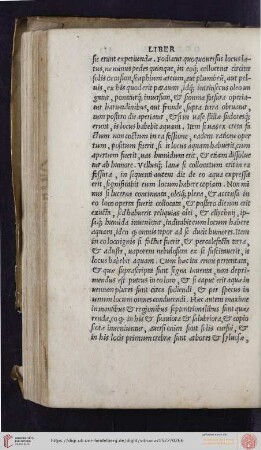 LIBER
sic erunt experiundæ. Fodiatur quoquouersus locus la-
tus, ne minus pedes quinque, in eoq́; collocetur circiter
solis occasum, scaphium æreum, aut plumbeũ, aut pel-
uis, ex his quod erit paratum, idq́; intrinsecus oleo un-
gatur, ponaturq́; inuersum, & summa fossura operia-
tur harundinibus, aut fronde, supra terra obruatur,
tum postero die aperiatur, & si in uase stillæ sudoresq́;
erunt, is locus habebit aquam. Item si uas ex creta fa-
ctum non coctum in ea fossione, eadem ratione oper-
tum, positum fuerit, si is locus aquam habuerit, cum
apertum fuerit, uas humidum erit, & etiam dissolue
tur ab humore. Vellusq́; lanæ si collocatum erit in ea
fossura, in sequenti autem die de eo aqua expressa
erit, significabit eum locum habere copiam. Non mi
nus si lucerna concinnata, oleiq́; plena, & accensa in
eo loco operta fuerit collocata, & postera die non erit
exucta, sed habuerit reliquias olei, & ellychnii, ip-
saq́; humida inuenietur, indicabit eum locum habere
aquam, ideo q̃ omnis tepor ad se ducit humores. Item
in eo loco ignis si factus fuerit, & percalefacta terra,
& adusta, uaporem nebulosum ex se suscitauerit, is
locus habebit aquam. Cum hæc ita erunt pertentata,
& quæ suprascripta sunt signa inuenta, tum depri-
mendus est puteus in eo loco, & si erit caput aquæ in
uentum plures sunt circa fodiendi, & per specus in
unum locum omnes conducendi. Hæc autem maxime
in montibus & regionibus septentrionalibus sunt quæ
renda, eo q̃ in his & suauiora & salubriora, & copio
siora inueniuntur, auersi enim sunt solis cursui, &
in his locis primum crebræ sunt arbores & syluosæ,
https://digi.ub.uni-heidelberg.de/diglit/vitruvius1522/0266